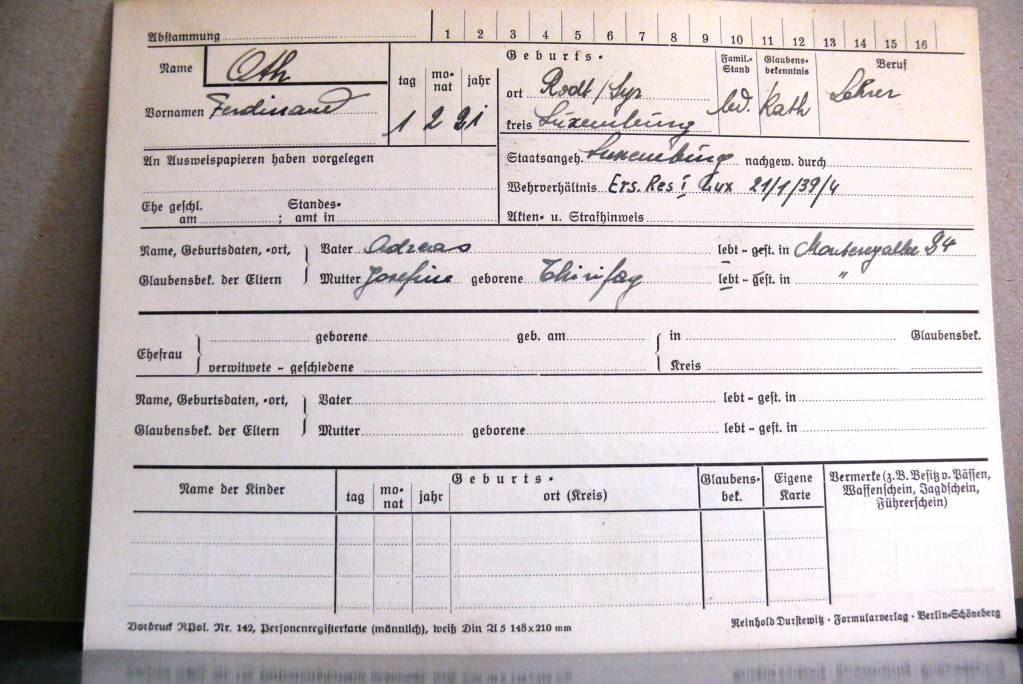 Abstammung 1 2 3 4 5 6 7 8 9 10 11 12 13 14 15 16
Name Oth
Vornamen Ferdinand
tag mo-nat jahr
1 2 21
Geburts-
ort Rodt/Syr
kreis Luxemburg
Famil.-Stand
led.
Glaubens-bekenntnis
Kath
Beruf
Lehrer
An Ausweispapieren haben vorgelegen
Staatsangeh. Luxemburg nachgew. durch
Wehrverhältnis Ers. Res I Lux 21/1/39/4
Ehe geschl. am ; Standes-amt in
Akten- u. Strafhinweis
Name, Geburtsdaten, -ort, Vater Adreas lebt - gest. in
Glaubensbek. der Eltern Mutter Josefine geborene lebt - gest. in "
Ehefrau geborene geb. am in Glaubensbek.
verwitwete - geschiedene Kreis
Name, Geburtsdaten, -ort, Vater lebt - gest. in
Glaubensbek. der Eltern Mutter geborene lebt - gest. in
Name der Kinder
tag mo-nat jahr
Geburts-
ort (Kreis)
Glaubens-bek.
Eigene Karte
Vermerke (z. B. Besitz v. Pässen,
Waffenschein, Jagdschein,
Führerschein)
Vordruck RPol. Nr. 142, Personenregisterkarte (männlich), weiß Din A 5 148 x 210 mm
Reinhold Durstewitz · Formularverlag · Berlin-Schöneberg